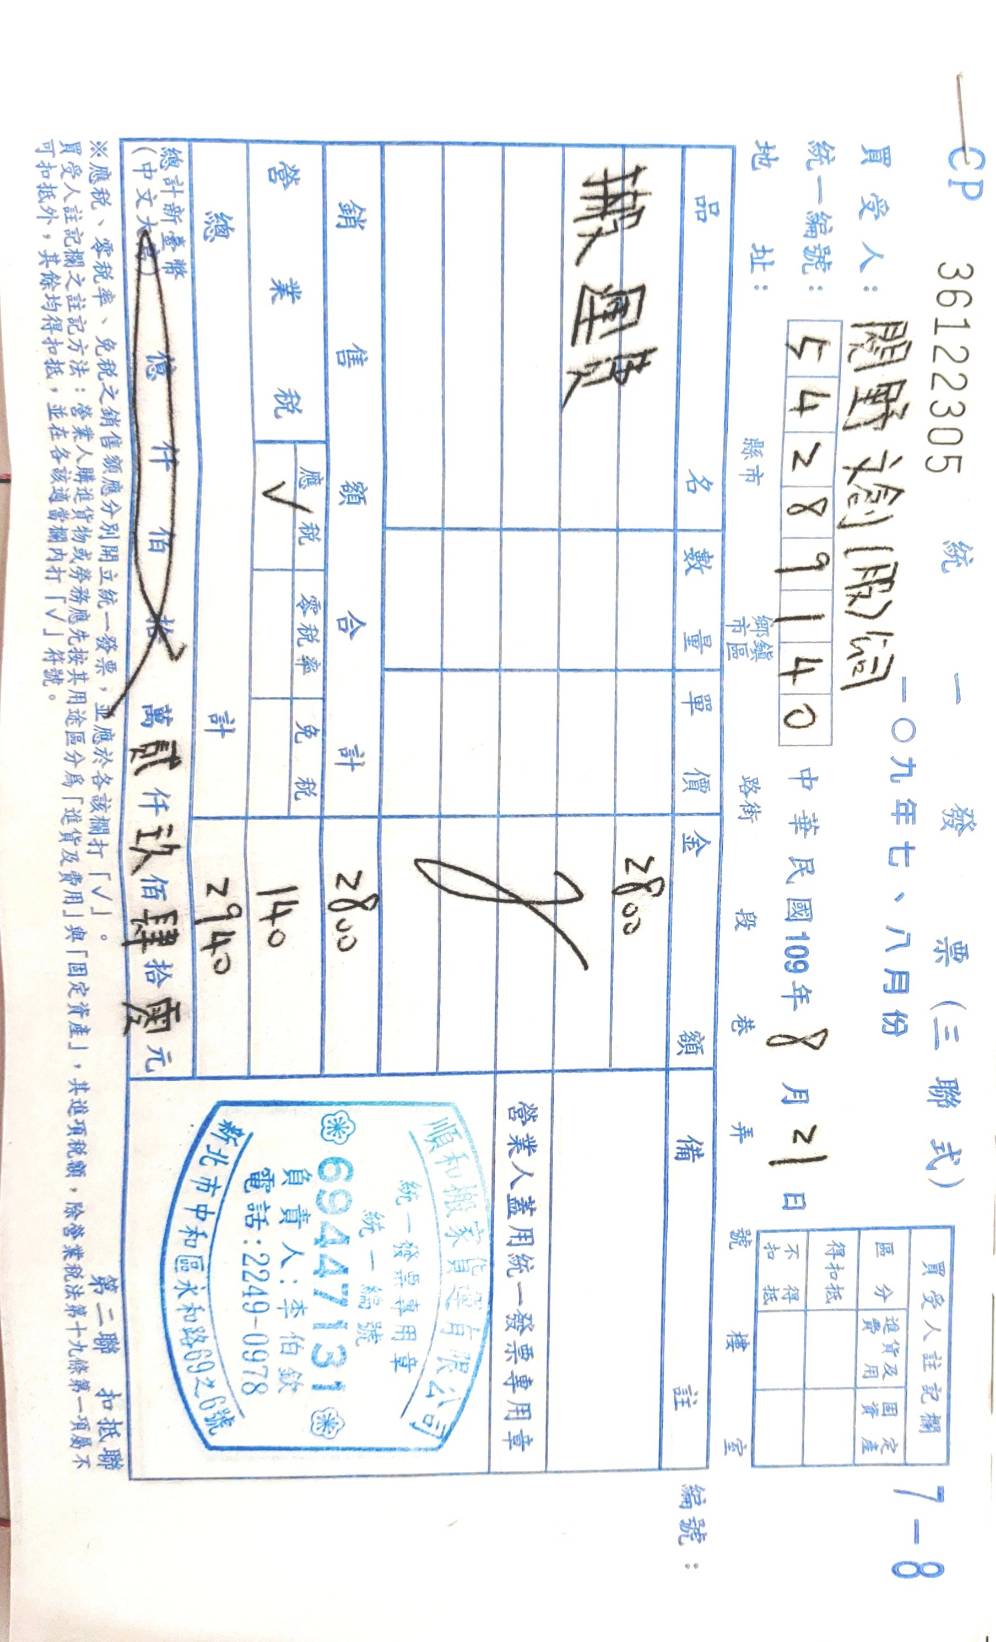 CP 36122305 統一發票(三聯式)
一〇九年七、八月份
7-8
買受人：閱野文創(股)公司
統一編號：54289140
中華民國109年8月21日
地址： 縣市 鄉鎮市區 路街 段 巷 弄 號 樓 室
買受人註記欄
區分 進貨及費用 固定資產
得扣抵
不得扣抵
編號：
品名 數量 單價 金額 備註
搬運費 2800
營業人蓋用統一發票專用章
銷售額合計 2800
營業稅 應稅 √ 零稅率 免稅 140
總計 2940
總計新臺幣
(中文大寫) 億仟佰拾萬貳仟玖佰肆拾零元
順和搬家貨運有限公司
統一發票專用章
統一編號
69447131
負責人：李伯欽
電話：2249-0978
新北市中和區永和路69之6號
※應稅、零稅率、免稅之銷售額應分別開立統一發票，並應於各該欄打「√」。
買受人註記欄之註記方法：營業人購進貨物或勞務應先按其用途區分為「進貨及費用」與「固定資產」，其進項稅額，除營業稅法第十九條第一項屬不
可扣抵外，其餘均得扣抵，並在各該適當欄內打「√」符號。
第二聯 扣抵聯